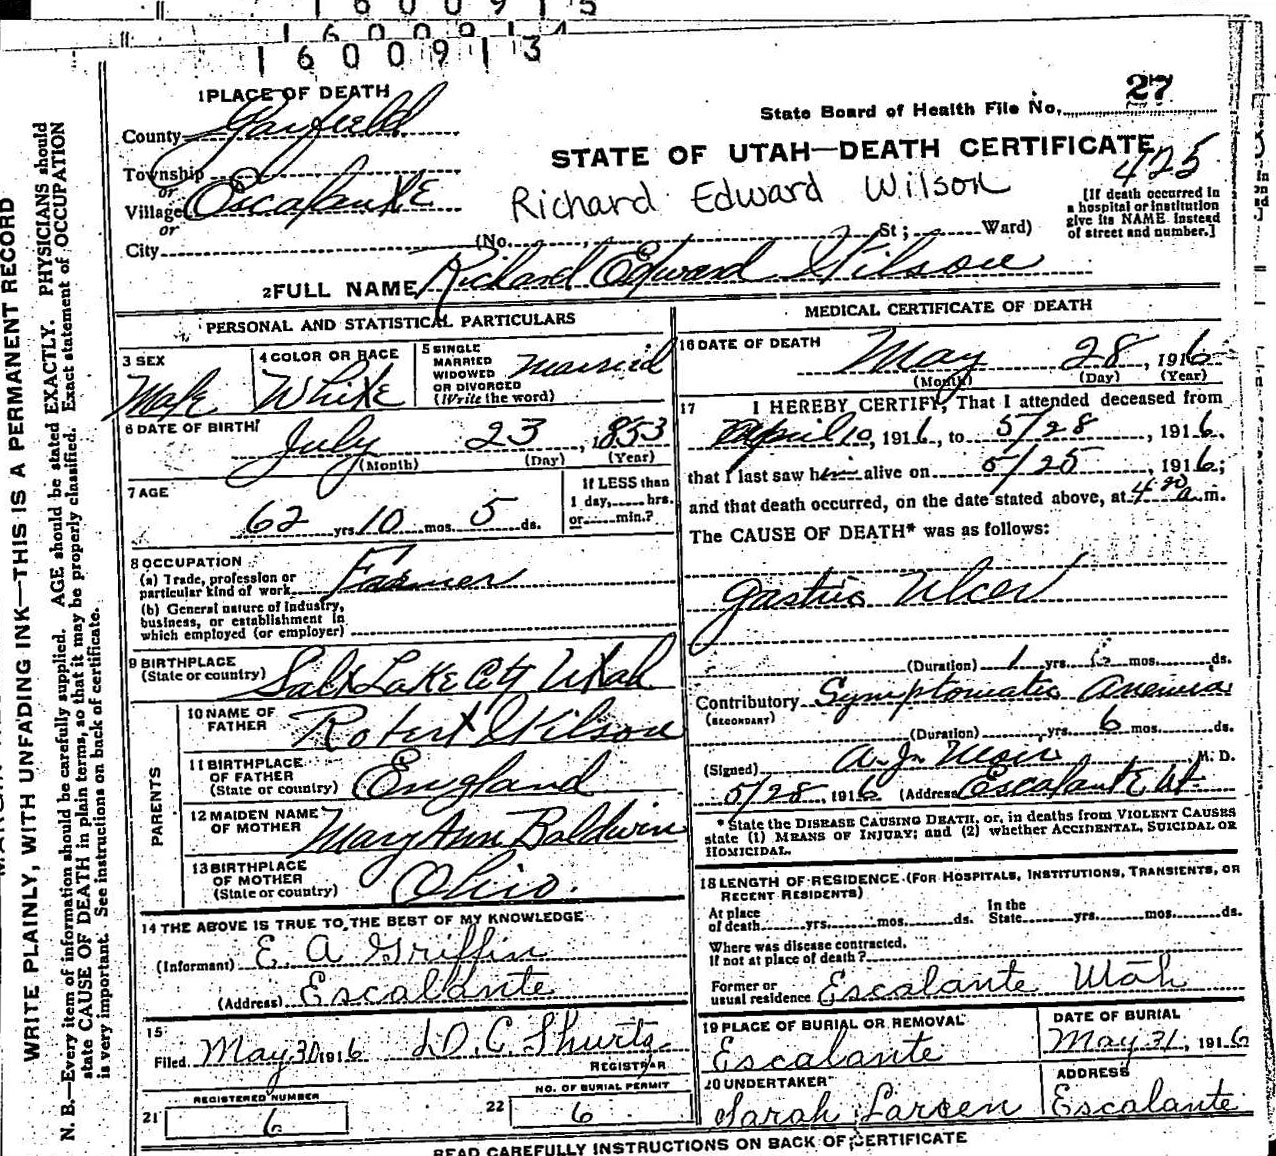 1600915
1600914
1600913
1 PLACE OF DEATH
County Garfield
Township
or
Village Escalante
or
City (No. St; Ward)
State Board of Health File No. 27
STATE OF UTAH—DEATH CERTIFICATE
425
Richard Edward Wilson
[If death occurred in
a hospital or institution
give its NAME instead
of street and number.]
2 FULL NAME Richard Edward Wilson
PERSONAL AND STATISTICAL PARTICULARS
3 SEX
Male
4 COLOR OR RACE
White
5 SINGLE
MARRIED
WIDOWED
OR DIVORCED
(Write the word)
Married
6 DATE OF BIRTH
July 23, 1853
(Month) (Day) (Year)
7 AGE
62 yrs. 10 mos. 5 ds.
If LESS than
1 day, hrs.
or min.?
8 OCCUPATION
(a) Trade, profession or
particular kind of work Farmer
(b) General nature of industry,
business, or establishment in
which employed (or employer)
9 BIRTHPLACE
(State or country) Salt Lake City Utah
PARENTS
10 NAME OF
FATHER Robert Wilson
11 BIRTHPLACE
OF FATHER
(State or country) England
12 MAIDEN NAME
OF MOTHER Mary Ann Baldwin
13 BIRTHPLACE
OF MOTHER
(State or country) Ohio.
14 THE ABOVE IS TRUE TO THE BEST OF MY KNOWLEDGE
(Informant) E. A Griffin
(Address) Escalante
15
Filed May 30 1916 REGISTRAR
21 REGISTERED NUMBER
6
22 NO. OF BURIAL PERMIT
6
MEDICAL CERTIFICATE OF DEATH
16 DATE OF DEATH
May 28, 1916
(Month) (Day) (Year)
17 I HEREBY CERTIFY, That I attended deceased from
April 10, 1916, to 5/28, 1916.
that I last saw him alive on 5/25, 1916;
and that death occurred, on the date stated above, at 4 20 a.m.
The CAUSE OF DEATH* was as follows:
Gastric Ulcer
(Duration) 1 yrs. 6 mos. ds.
Contributory Symptomatic Anemia
(SECONDARY)
(Duration) yrs. 6 mos. ds.
(Signed) M. D.
5/28, 1916 (Address) Escalante Ut.
* State the DISEASE CAUSING DEATH, or, in deaths from VIOLENT CAUSES
state (1) MEANS OF INJURY; and (2) whether ACCIDENTAL, SUICIDAL OR
HOMICIDAL.
18 LENGTH OF RESIDENCE (FOR HOSPITALS, INSTITUTIONS, TRANSIENTS, OR
RECENT RESIDENTS)
At place
of death yrs. mos. ds.
In the
State yrs. mos. ds.
Where was disease contracted,
if not at place of death?
Former or
usual residence Escalante Utah
19 PLACE OF BURIAL OR REMOVAL
Escalante
DATE OF BURIAL
May 31, 1916
20 UNDERTAKER
Sarah Larsen
ADDRESS
Escalante
READ CAREFULLY INSTRUCTIONS ON BACK OF CERTIFICATE
WRITE PLAINLY, WITH UNFADING INK—THIS IS A PERMANENT RECORD
N. B.—Every item of information should be carefully supplied. AGE should be stated EXACTLY. PHYSICIANS should
state CAUSE OF DEATH in plain terms, so that it may be properly classified. Exact statement of OCCUPATION
is very important. See instructions on back of certificate.